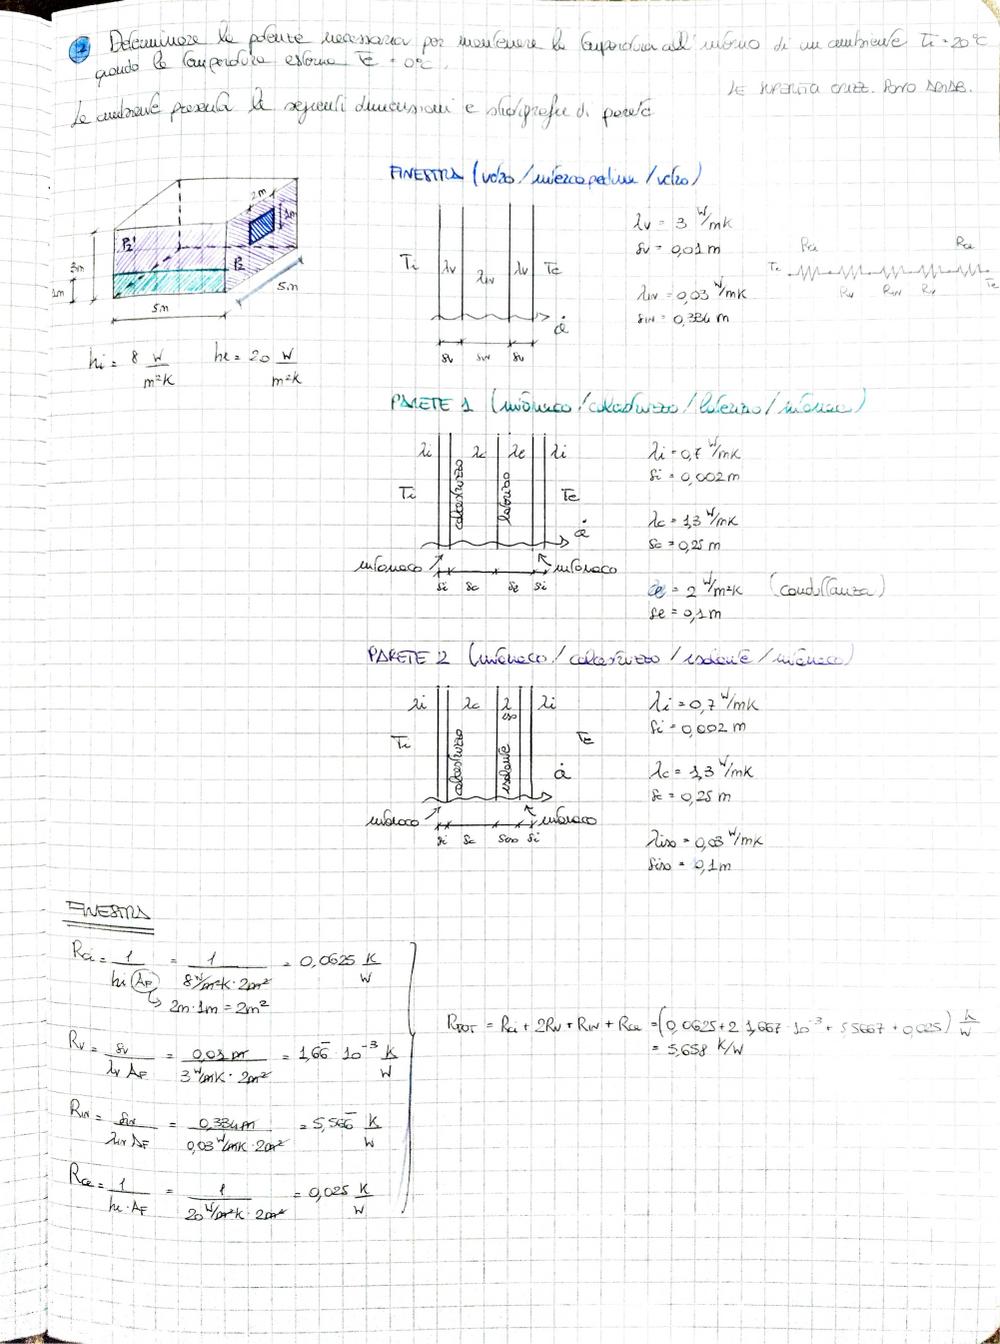 2 Determinare la potenza necessaria per mantenere la temperatura all'interno di un ambiente Ti = 20°C
quando la temperatura esterna Te = 0°C.
LE SUPERFICI ORIZZ. SONO ADIAB.
L'ambiente presenta le seguenti dimensioni e stratigrafie di parete
FINESTRA (vetro/intercapedine/vetro)
2m
1m
P2
P2
3m
1m
5m
5m
hi = 8 W/m²K he = 20 W/m²K
Ti λv λin λv Te
Q̇
sv sin sv
λv = 3 W/mK
sv = 0,01 m
λin = 0,03 W/mK
sin = 0,334 m
Rci Rce
Ti Te
Rv Rin Rv
PARETE 1 (intonaco/calcestruzzo/laterizio/intonaco)
λi λc λe λi
Ti calcestruzzo laterizio Te
Q̇
intonaco intonaco
si sc se si
λi = 0,7 W/mK
si = 0,002 m
λc = 1,3 W/mK
sc = 0,25 m
= 2 W/m²K (conduttanza)
se = 0,1 m
PARETE 2 (intonaco/calcestruzzo/isolante/intonaco)
λi λc λiso λi
Ti calcestruzzo isolante Te
Q̇
intonaco intonaco
si sc siso si
λi = 0,7 W/mK
si = 0,002 m
λc = 1,3 W/mK
sc = 0,25 m
λiso = 0,03 W/mK
siso = 0,1 m
FINESTRA
Rci = 1/(hi AF) = 1/(8 W/m²K · 2m²) = 0,0625 K/W
↳ 2m · 1m = 2m²
Rv = sv/(λv AF) = 0,01 m/(3 W/mK · 2m²) = 1,66 · 10⁻³ K/W
Rin = sin/(λin AF) = 0,334 m/(0,03 W/mK · 2m²) = 5,566 K/W
Rce = 1/(he · AF) = 1/(20 W/m²K · 2m²) = 0,025 K/W
RTOT = Rci + 2Rv + Rin + Rce = (0,0625 + 2 · 1,667 · 10⁻³ + 5,5667 + 0,025) K/W
= 5,658 K/W